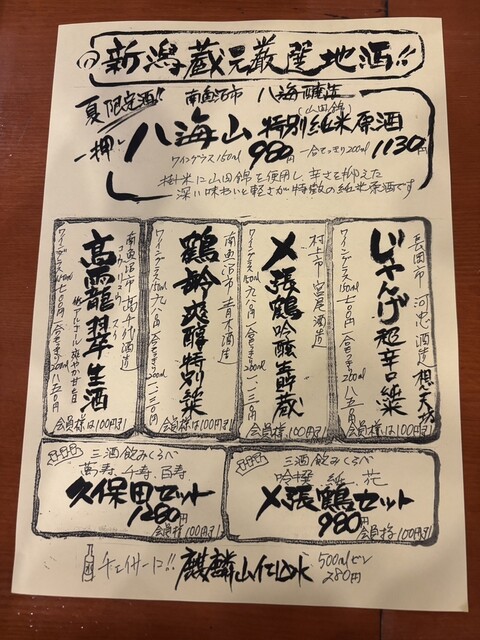 新潟蔵元厳選地酒!!
夏限定酒!!
一押し
南魚沼市 八海醸造
(山田錦)
八海山 特別純米原酒
ワイングラス150ml 980円 一合とっきり200ml 1130円
掛米に山田錦を使用し、辛さを抑えた
深い味わいと軽さが特徴の純米原酒です
長岡市 河忠酒造 想天坊
じゃんげ 超辛口純米
ワイングラス150ml 七〇〇円 一合とっきり200ml 八五〇円
会員様は100円引
村上市 宮尾酒造
〆張鶴 吟醸生貯蔵
ワイングラス150ml 九八〇円 一合とっきり200ml 一、一三〇円
会員様、100円引
南魚沼市 青木酒造
鶴齢 爽醇 特別純米
ワイングラス150ml 九八〇円 一合とっきり200ml 一、一三〇円
会員様は100円引
南魚沼市 高千代酒造
高龗 翠 生酒
低アルコール 爽やか甘旨
ワイングラス150ml 七〇〇円 一合とっきり200ml 八五〇円
会員様は100円引
三酒飲みくらべ
萬寿、千寿、百寿
久保田セット
1280円
会員様100円引
三酒飲みくらべ
吟撰 純 花
〆張鶴セット
980円
会員様100円引
チェイサーに!! 麒麟山仕込水 500mlビン
280円